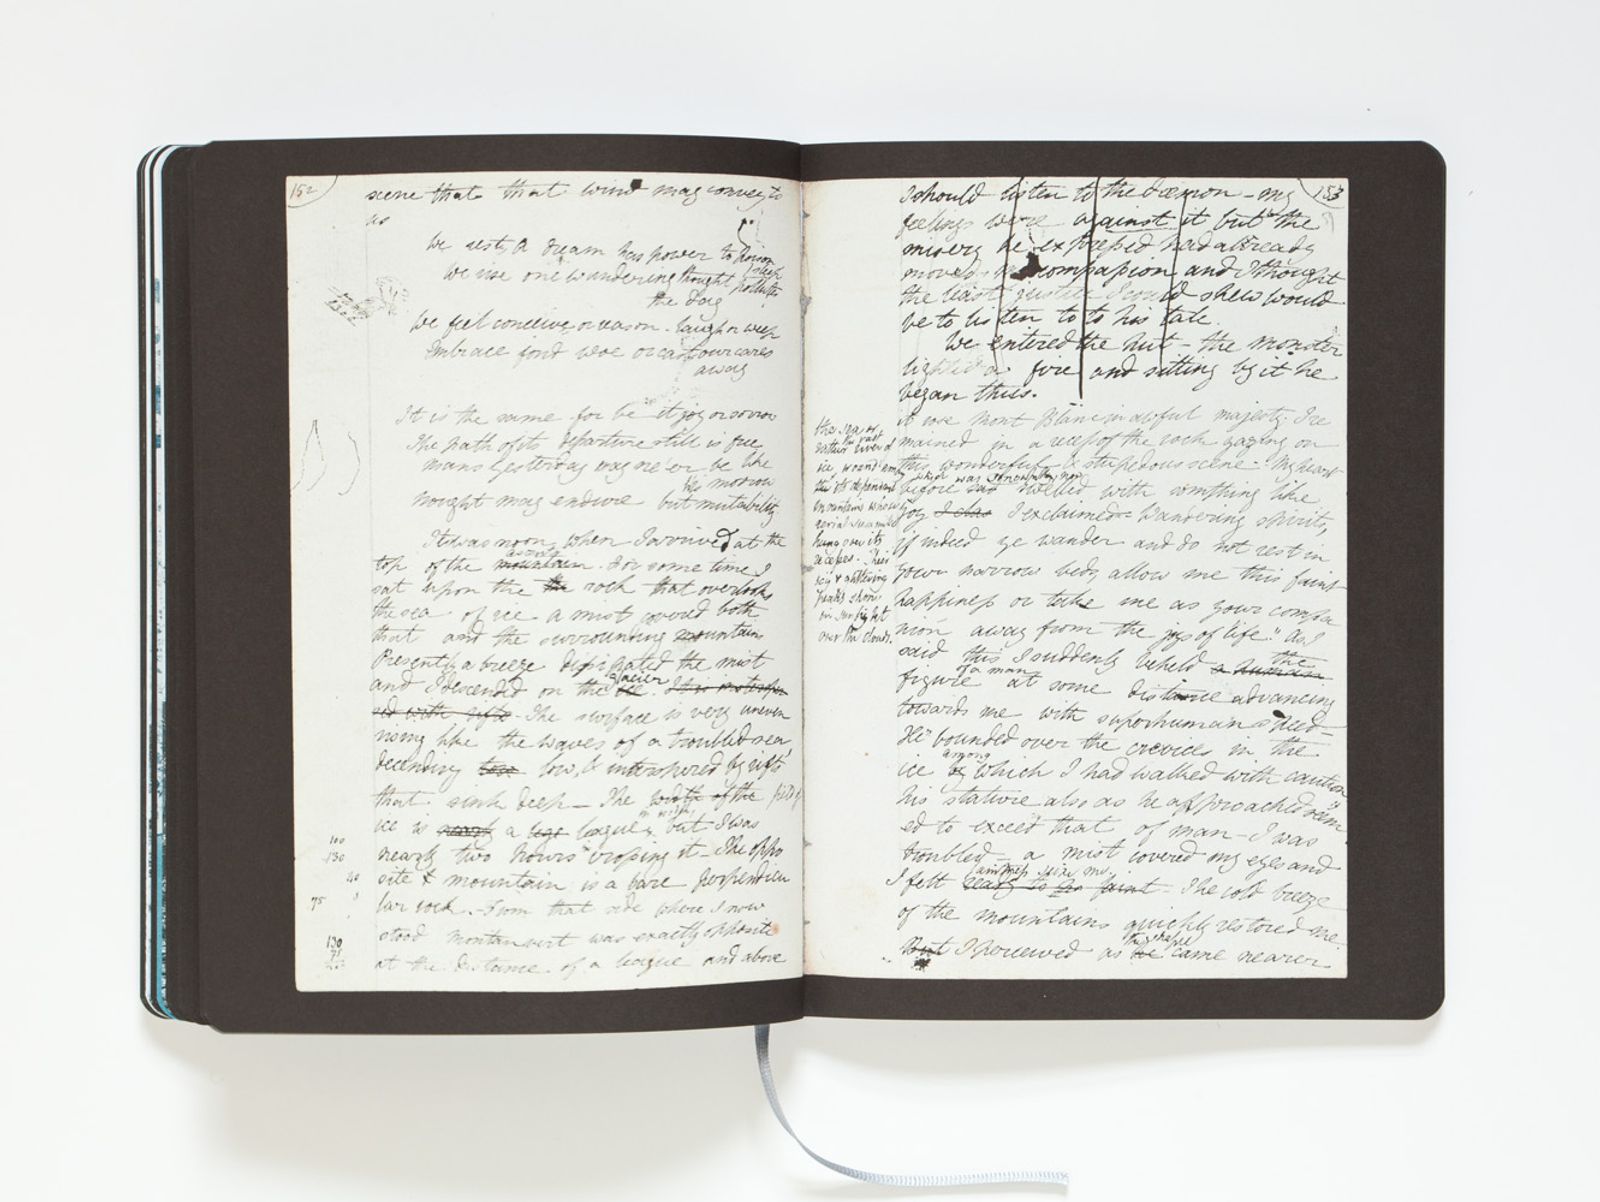 152
scene that that wind may convey to
us
We rest, a dream has power to poison
sleep
We rise one wandering thought pollutes
the day
We feel conceive or reason. laugh or weep
Embrace fond woe or cast our cares
away
It is the same for be it joy or sorrow
The path of its departure still is free
mans yesterday may ne'er be like
his morrow
Nought may endure but mutability
It was noon when I arrived at the
ascent
top of the mountain. For some time I
sat upon the the rock that overlooks
the sea of ice a mist covered both
that and the surrounding mountains
Presently a breeze dissipated the mist
glacier
and I descended on the ice. It is intersper
sed with rifts. The surface is very uneven
rising like the waves of a troubled sea,
decending low, & interspersed by rifts
that sink deep — The width of the field of
in width
ice is nearly a league, but I was
nearly two hours crossing it — The oppo
site mountain is a bare perpendicu
lar rock. From that side where I now
stood montanvert was exactly opposite
at the distance of a league and above
100
130
75
130
75
153
I should listen to the dæmon — my
feelings were against it but the
misery he expressed had already
moved compassion and I thought
the least justice I could shew would
be to listen to to his tale.
We entered the hut — the monster
lighted a fire and sitting by it he
began thus.
it rose Mont Blanc in awful majesty. I re
mained in a recess of the rock gazing on
this wonderful & stupendous scene — My heart
which was sorrowful now
before sad swelled with something like
joy I exclaimed — Wandering spirits,
if indeed ye wander and do not rest in
your narrow beds, allow me this faint
happiness or take me as your compa
nion away from the joys of life." As I
the
said this I suddenly beheld a human
of a man
figure at some distance advancing
towards me with superhuman speed —
He bounded over the crevices in the
among
ice by which I had walked with caution
his stature also as he approached seem
ed to exceed that of man — I was
troubled — a mist covered my eyes and
faintness seize me
I felt ready to faint. The cold breeze
of the mountains quickly restored me.
the shape
But I perceived as he came nearer
the sea or
rather the vast river of
ice wound among
its dependant
mountains whose
aerial summits
hung over its
recesses. Their
icy & glittering
peaks shone
in sunlight
over the clouds.